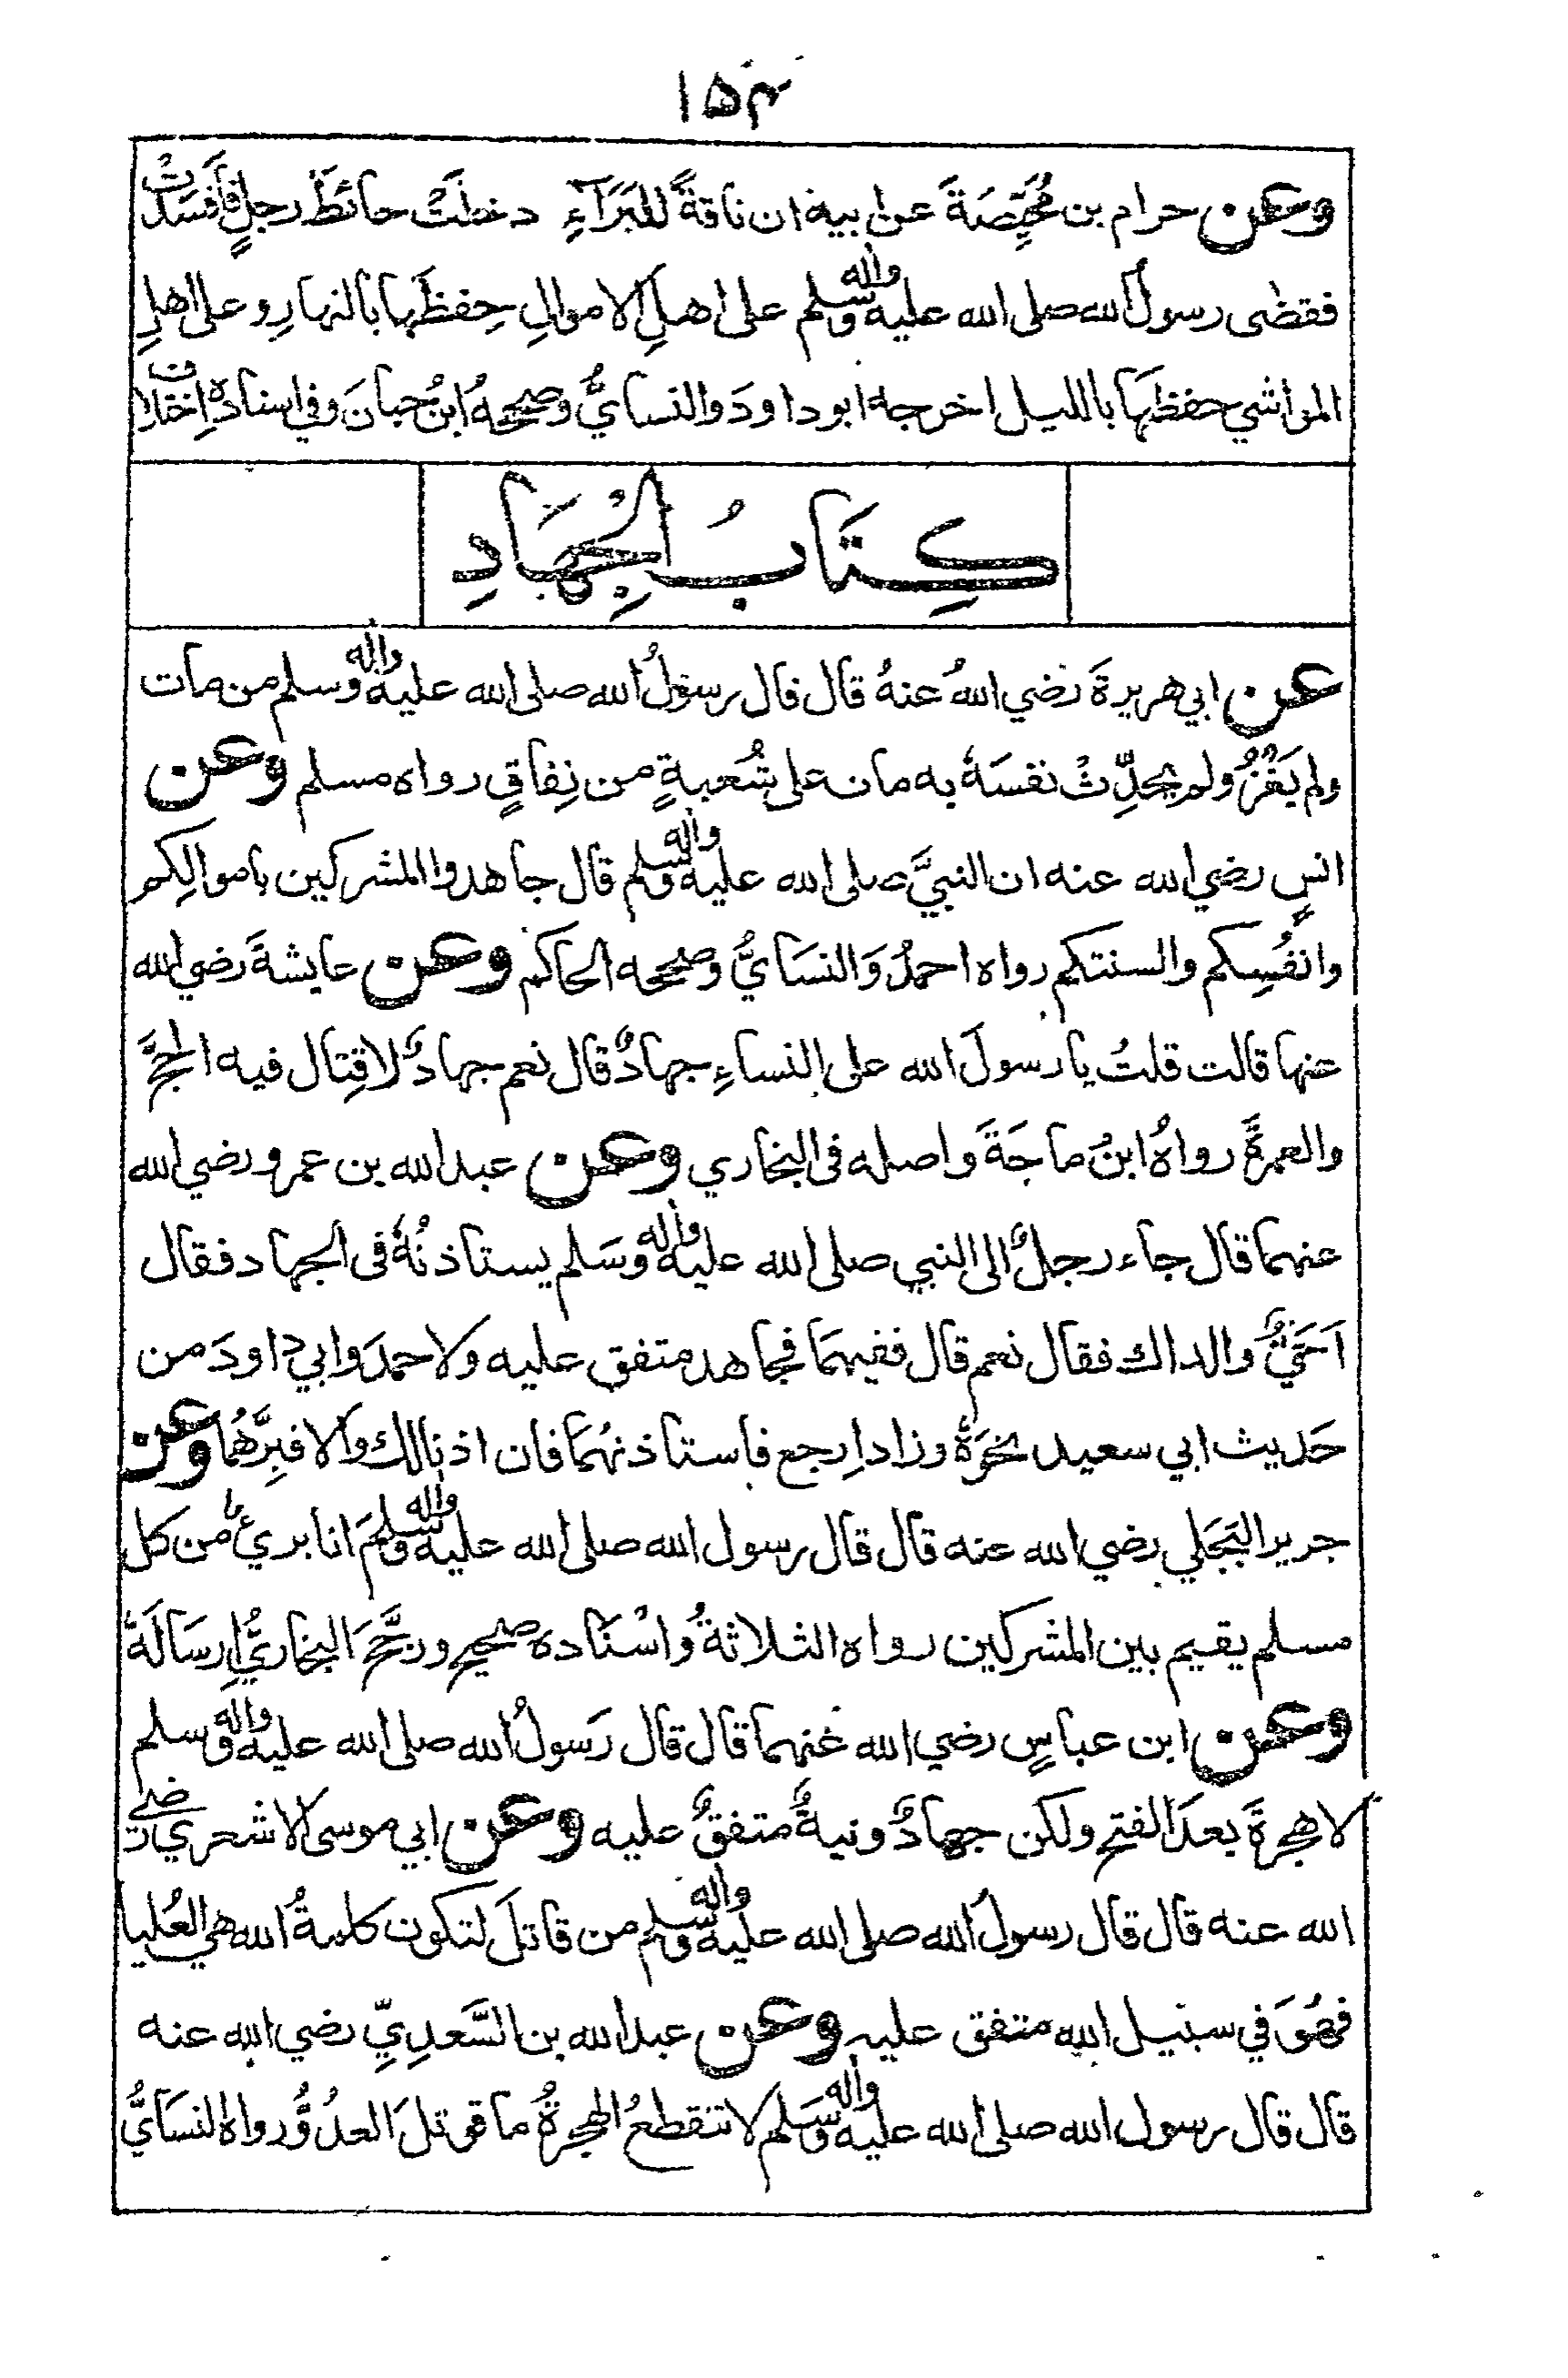 ١٥٣
وعن حرام بن مُحَيِّصَةَ عن ابيه ان ناقةً للبَرَآءِ دخلَتْ حائطَ رجلٍ فأَفسَدَتْ
فقضى رسولُ الله صلى الله عليه واله وسلم على اهلِ الاموالِ حِفظَها بالنهارِ وعلى اهلِ
المواشي حفظَها بالليل اخرجه ابو داودَ والنسايُّ وصححهُ ابنُ حبانَ وفي اسنادهِ اِختلاف
كِتَابُ الْجِهَادِ
عن ابي هريرةَ رضي اللهُ عنهُ قال قال رسولُ الله صلى الله عليه واله وسلم من مات
ولم يَغْزُ ولم يُحدِّثْ نفسَهُ به مات على شُعبةٍ من نِفاقٍ رواه مسلم وعن
انسٍ رضي الله عنه ان النبيَّ صلى الله عليه واله وسلم قال جاهدوا المشركين باموالِكم
وانفُسِكم والسنتكم رواه احمدُ وَالنسَايُّ وصححه الحاكم وعن عايشةَ رضي الله
عنها قالت قلتُ يا رسولَ الله على النساءِ جهادٌ قال نعم جهادٌ لا قِتال فيه الحجُّ
والعمرةُ رواهُ ابنُ ماجَةَ واصله فى البخاري وعن عبد الله بن عمرو رضي الله
عنهما قال جاء رجلٌ الى النبي صلى الله عليه واله وسَلم يستاذنُهُ فى الجهاد فقال
اَحَيٌّ والداك فقال نعم قال ففيهمَا فجاهد متفق عليه ولاحمدَ وابي داودَ من
حَديث ابي سعيد نحوَهُ وزاد اِرجع فاستاذنهُمَا فان اذنا لك والا فبِرَّهُما وعن
جرير البَجَلي رضي الله عنه قال قال رسول الله صلى الله عليه واله وسلمَ انا بريٌ من كل
مسلم يقيم بين المشركين رواه الثلاثةُ واسْنَاده صحيح ورجَّحَ البخاريُّ اِرسَالَهُ
وعن ابن عباسٍ رضي الله عَنهما قال قال رَسولُ الله صلى الله عليه واله وسلم
لا هجرةَ بعدَ الفتح ولكن جهادٌ ونيةٌ متفقٌ عليه وعن ابي موسى الاشعري رضي
الله عنه قال قال رسولُ الله صلى الله عليه واله وسلم من قاتلَ لتكون كلمةُ الله هي العُليا
فهُوَ في سبيل الله متفق عليه وعن عبد الله بن السَّعدِيِّ رضي الله عنه
قال قال رسول الله صلى الله عليه واله وسَلم لا تنقطعُ الهجرةُ ما قوتلَ العدُوُّ رواه النسَايُّ